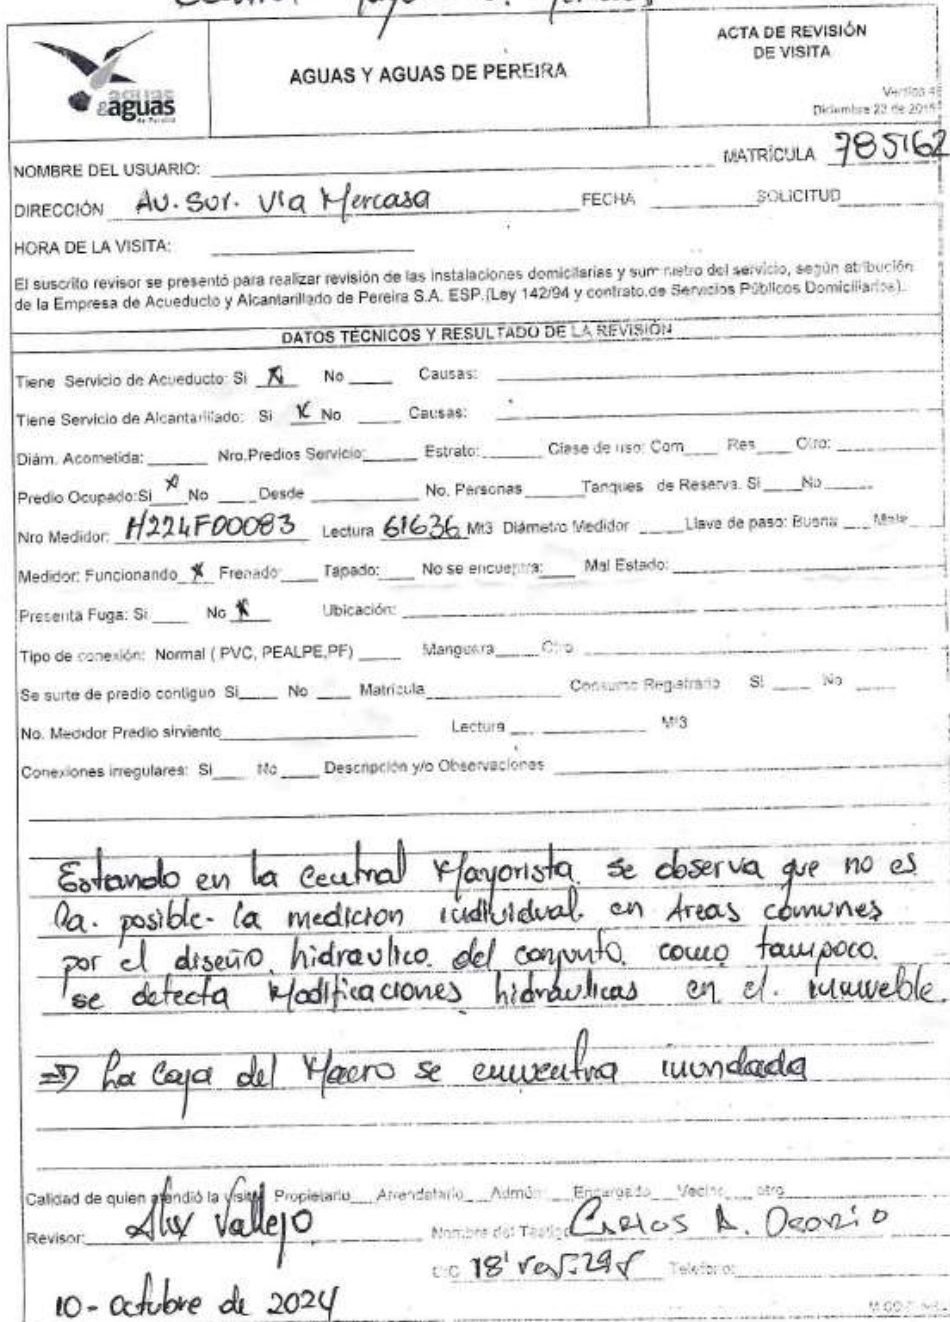 ACTA DE REVISIÓN
DE VISITA
AGUAS Y AGUAS DE PEREIRA
aguas
&aguas
de Pereira
Diciembre 23 de
MATRÍCULA 785162
NOMBRE DEL USUARIO:
DIRECCIÓN Av. Sur. Via Mercasa FECHA SOLICITUD
HORA DE LA VISITA:
El suscrito revisor se presentó para realizar revisión de las instalaciones domicilarias y suministro del servicio, según atribución
de la Empresa de Acueducto y Alcantarillado de Pereira S.A. ESP.(Ley 142/94 y contrato de Servicios Públicos Domiciliarios).
DATOS TÉCNICOS Y RESULTADO DE LA REVISIÓN
Tiene Servicio de Acueducto: Si X No Causas:
Tiene Servicio de Alcantarillado: Si X No Causas:
Diám. Acometida: Nro.Predios Servicio: Estrato: Clase de uso: Com Res Otro:
Predio Ocupado:Si X No Desde No. Personas Tanques de Reserva. Si No
Nro Medidor: H224F00083 Lectura 61636 Mt3 Diámetro Medidor Llave de paso: Buena Mala
Medidor: Funcionando X Frenado: Tapado: No se encuentra: Mal Estado:
Presenta Fuga: Si No X Ubicación:
Tipo de conexión: Normal ( PVC, PEALPE,PF) Manguera Otro
Se surte de predio contiguo Si No Matrícula Consumo Registrado Si No
No. Medidor Predio sirviente Lectura Mt3
Conexiones irregulares: Si No Descripción y/o Observaciones
Estando en la Central Mayorista se observa que no es
la. posible- la medicion individual en Areas comunes
por el diseño hidraulico. del conjunto. como tampoco.
se detecta Modificaciones hidraulicas en el. inmueble.
⇒ La Caja del Macro se encuentra inundada
Calidad de quien atendió la visita Propietario Arrendatario Admón Encargado Vecino otro
Revisor: Alex Vallejo Nombre del Testigo Carlos A. Osorio
C.C 18' Teléfono:
10- octubre de 2024